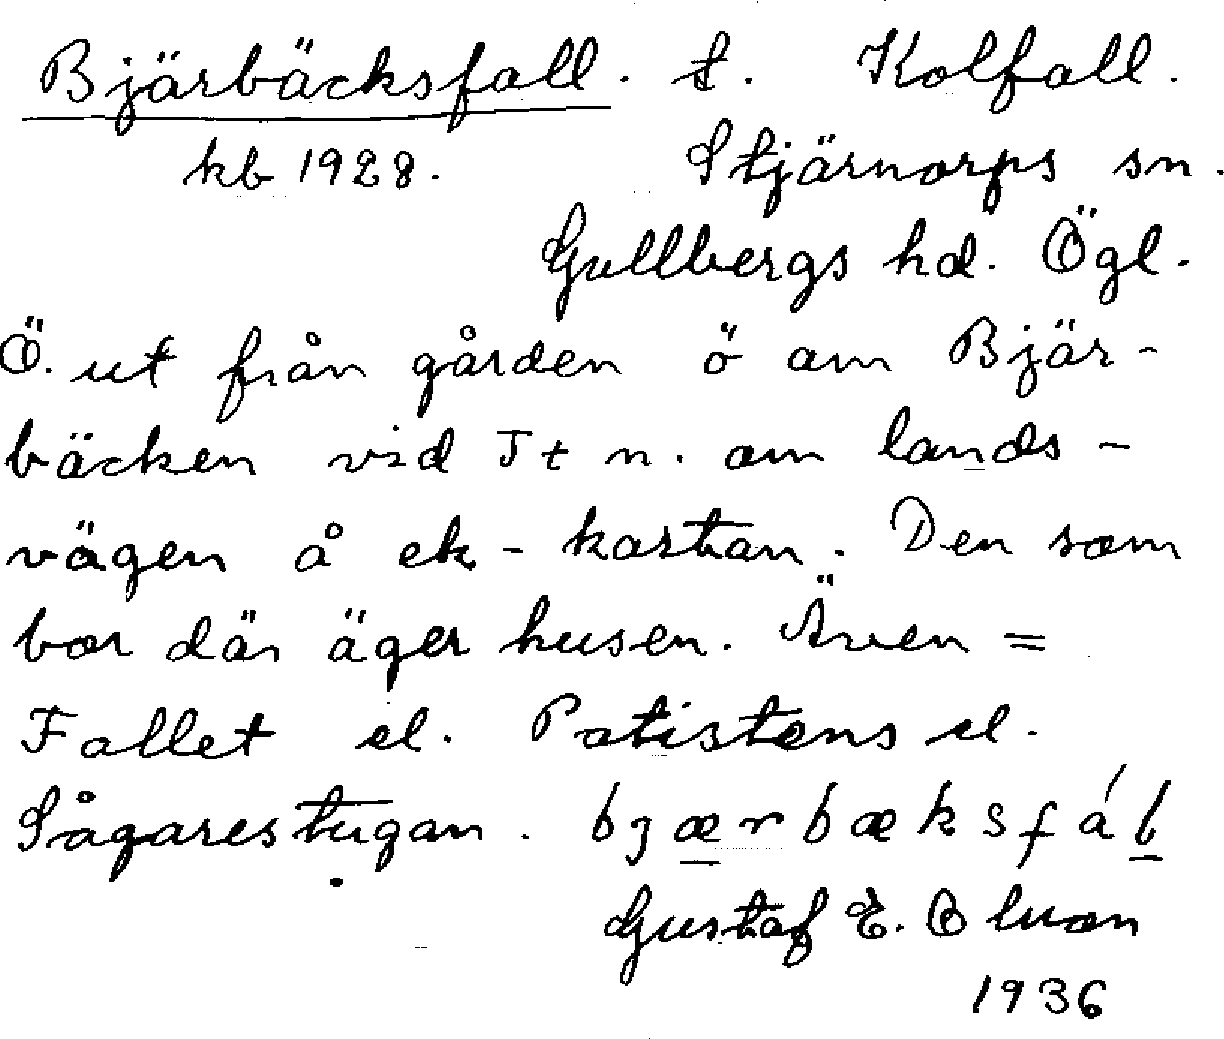 Bjärbäcksfall. t. Kolfall.
kb 1928. Stjärnorps sn.
Gullbergs hd. Ögl.
Ö. ut från gården ö om Bjär-
bäcken vid J t n. om lands-
vägen å ek-kastan. Den som
bor där äger husen. Även =
Fallet el. Patistens el.
Sågarestugan. bjærbæksfál
Gustaf E.
1936